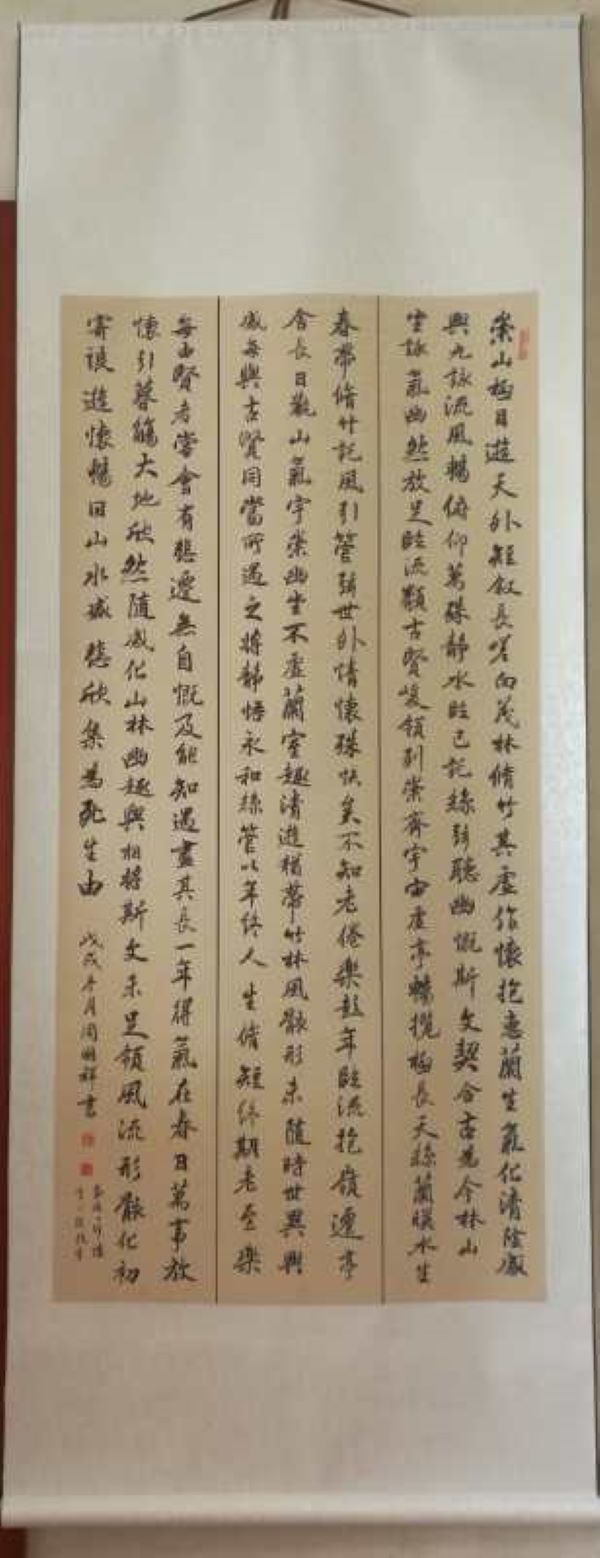 崇山極目遊天外短叙長嗟向茂林脩竹其虛作懷抱蕙蘭生氣化清陰感
興九詠流風暢俯仰萬殊靜水臨已託絲弦聽幽慨斯文契合古為今林山
坐詠氣幽然放足臨流觀古賢峻領列崇齊宇宙虛亭暢攬極長天絲蘭映水生
春帶脩竹託風引管弦世外情懷殊快矣不知老倦樂彭年臨流抱嶺遷亭
舍長日觀山氣宇崇幽坐不虛蘭室趣清遊猶帶竹林風骸形未隨時世異興
感每與古賢同當所遇之將靜悟永和絲管以年終人生脩短終期老至樂
每由賢者當會有懷遷無自慨及能知遇盡其長一年得氣在春日萬事放
懷引暮觴大地欣然隨感化山林幽趣與相將斯文未足領風流形骸化初
寄後遊懷暢日山水感懷欣集為死生由
戊戌年月周明祥書